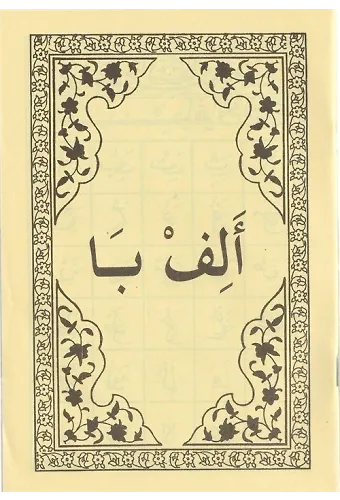 أَلِفْ بَا